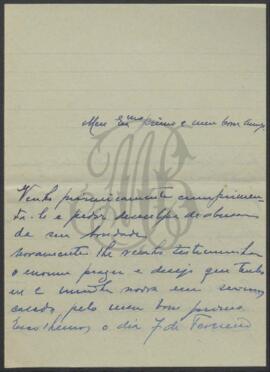 Meu Exmo primo e meu bom amigo
Venho primeiramente cumprimen-
tá-lo e pedir desculpa de abusar
de sua bondade
novamente lhe venho testemunhar
o enorme prazer e desejo que tenho
eu e minha noiva em sermos
casados pelo meu bom primo.
Escolhemos o dia 7 de Fevereiro